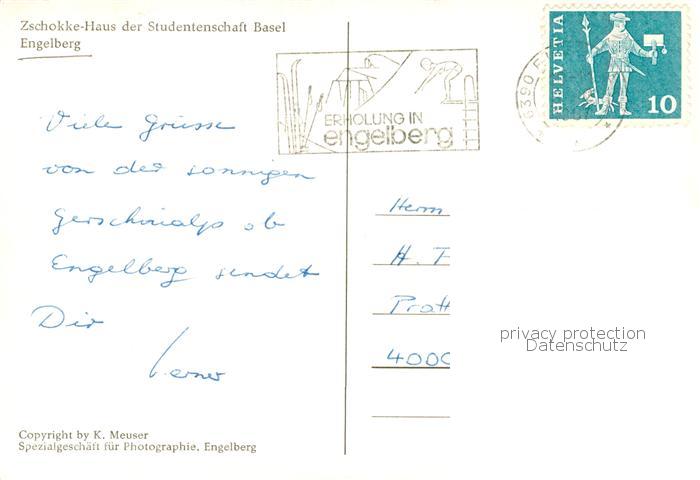 Zschokke-Haus der Studentenschaft Basel
Engelberg
ERHOLUNG IN
engelberg
6390
HELVETIA
10
Viele Grüsse
von der sonnigen
Gerschnialp ob
Engelberg sendet
Dir
Werner
Herrn
H. F
Pratt
4000
privacy protection
Datenschutz
Copyright by K. Meuser
Spezialgeschäft für Photographie, Engelberg